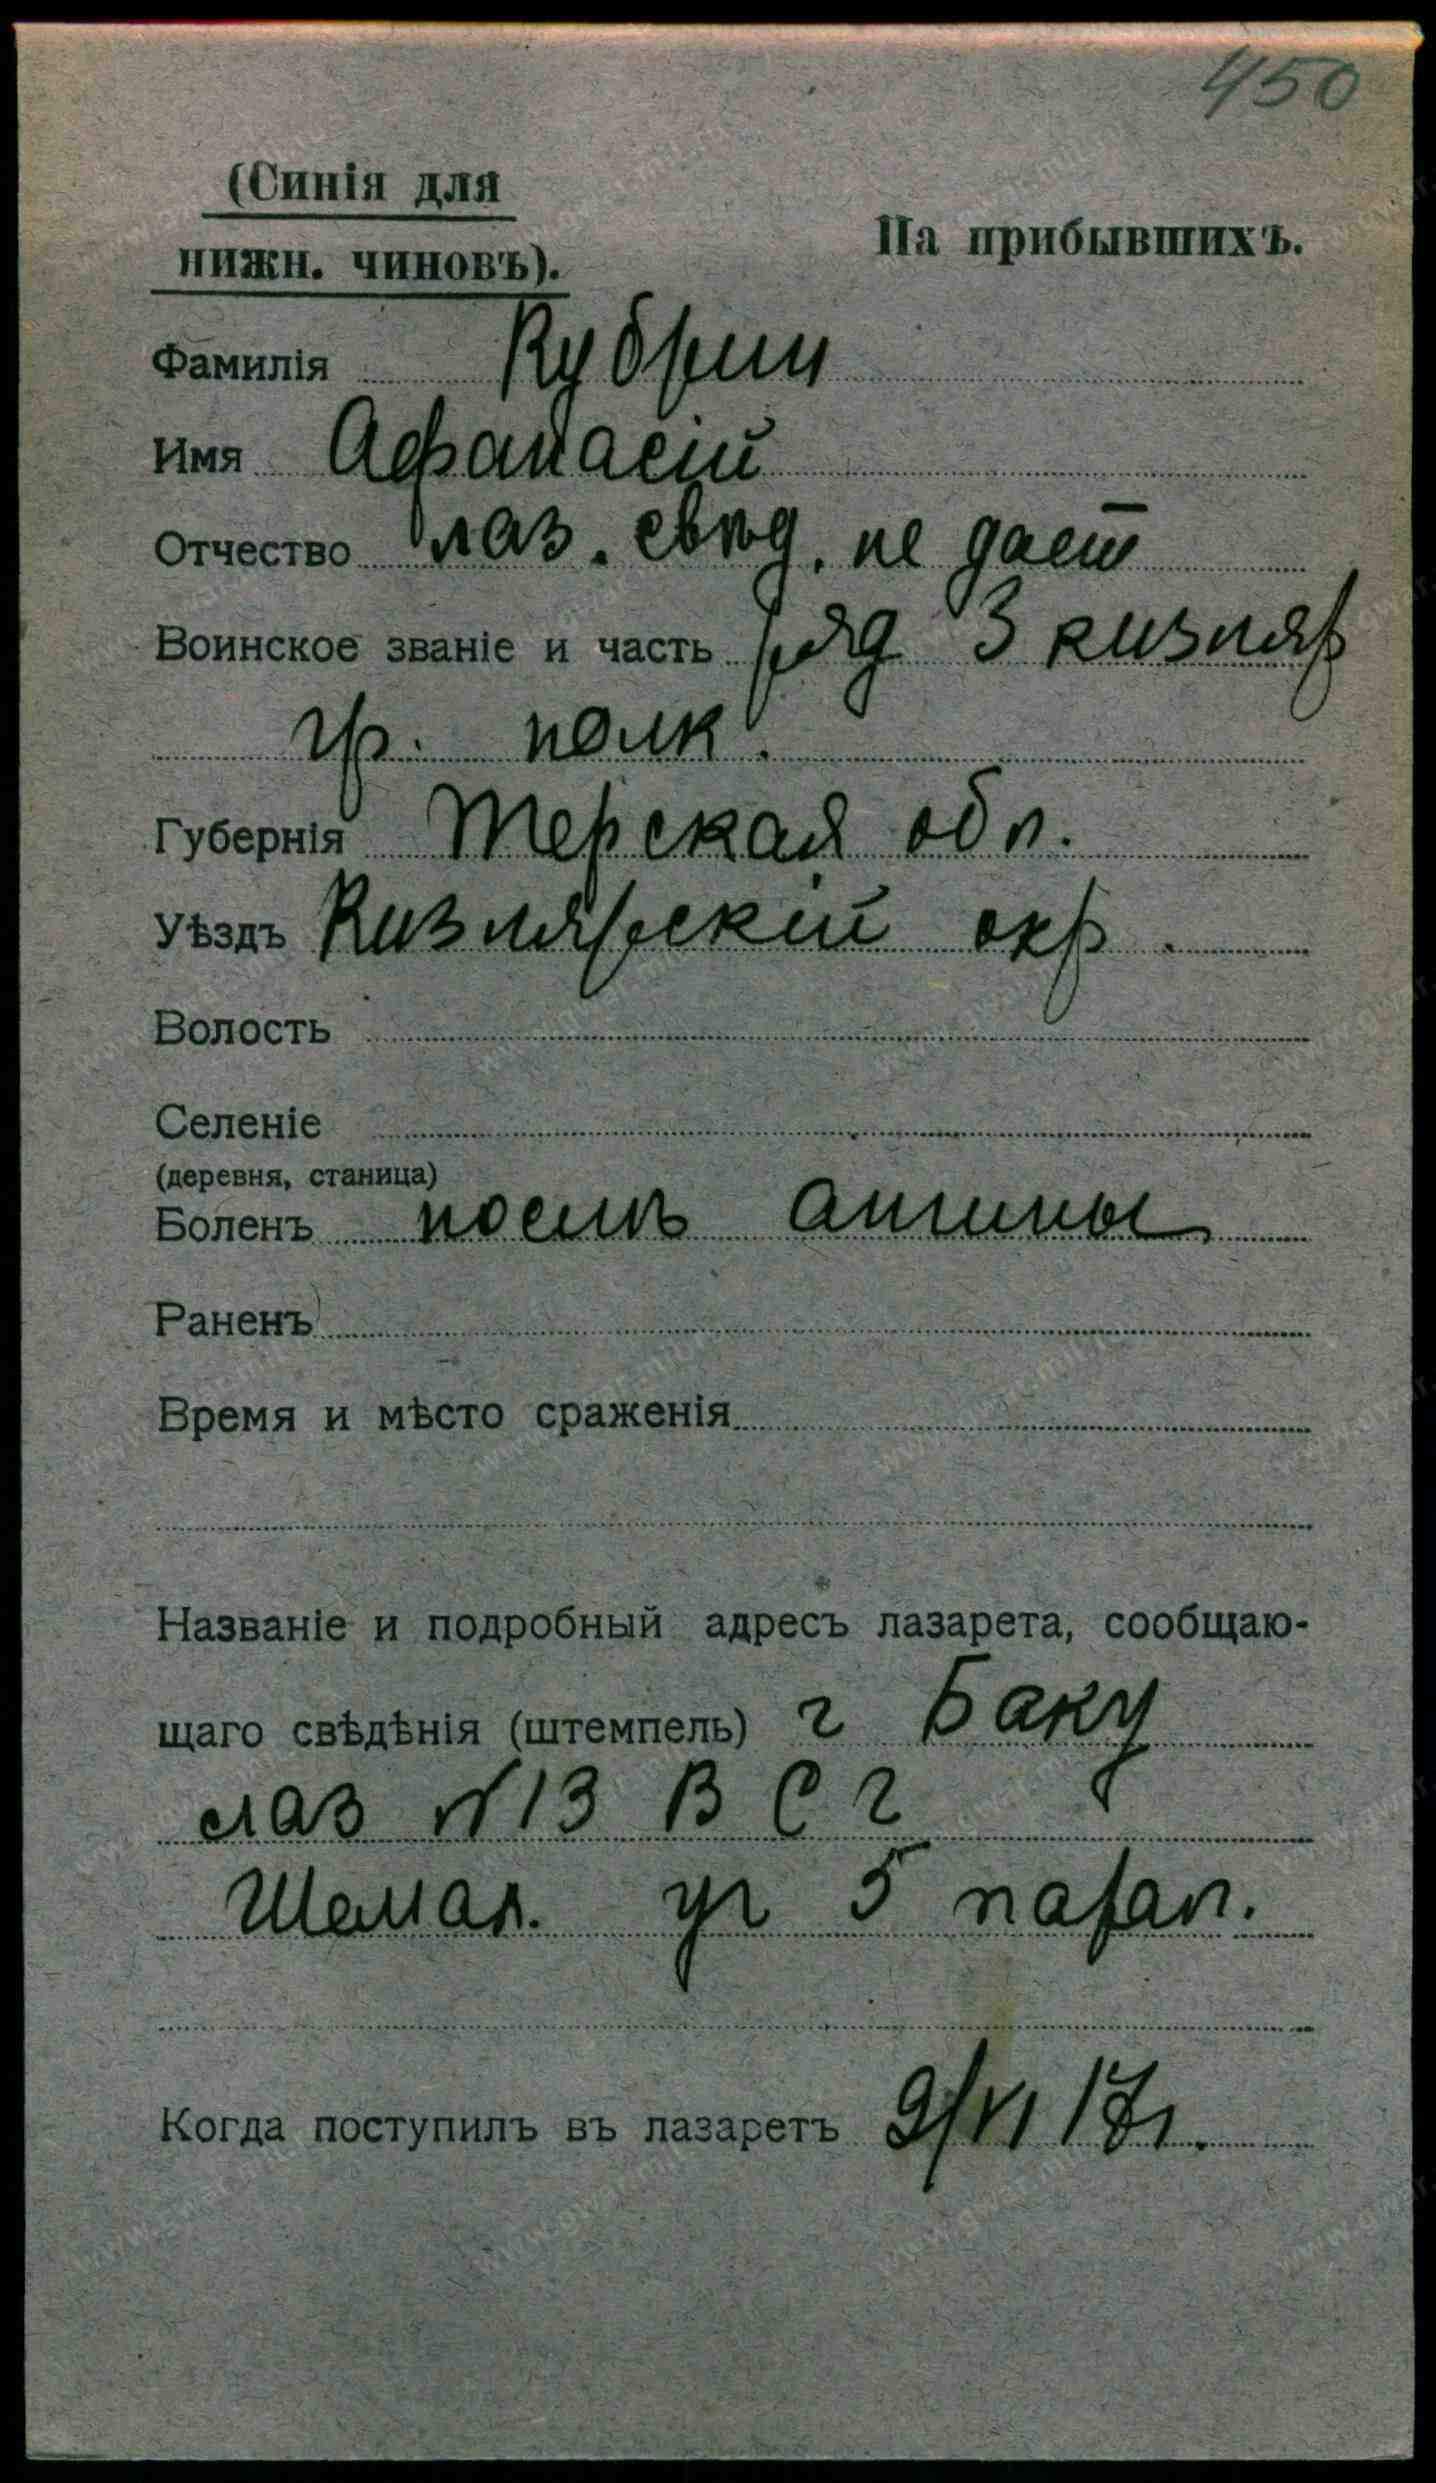 450
(Синія для
нижн. чиновъ).
На прибывшихъ.
Фамилія Кубрин
Имя Афанасій
Отчество лаз. свѣд. не дает
Воинское званіе и часть ряд 3 кизляр
гр. полк.
Губернія Терская обл.
Уѣздъ Кизлярскій окр.
Волость
Селеніе
(деревня, станица)
Боленъ послѣ ангины
Раненъ
Время и мѣсто сраженія
Названіе и подробный адресъ лазарета, сообщаю-
щаго свѣдѣнія (штемпель) г Баку
лаз №13 В С Г
Шемах. уг 5 парал.
Когда поступилъ въ лазаретъ 9/VI 17г.